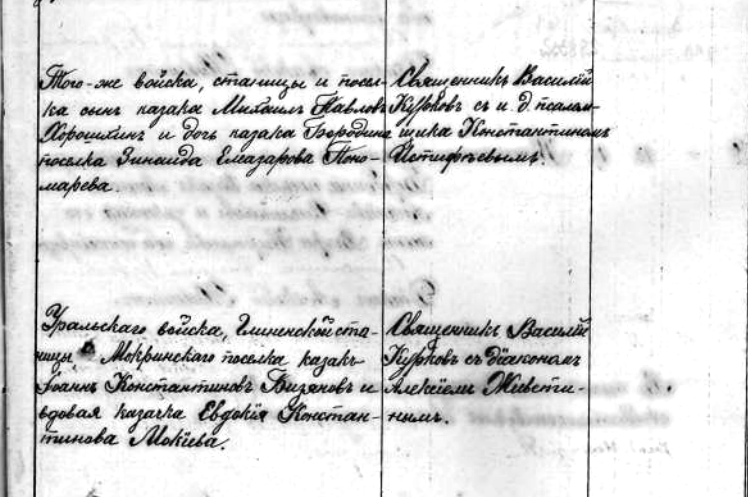 Того-же войска, станицы и посел-
ка сынъ казака Михаилъ Павловъ
Хорошхинъ и дочь казака Бородина
поселка Зинаида Елеазарова Поно-
марева.
Священникъ Василій
Курковъ съ и. д. псалом-
щика Константиномъ
Истифѣевымъ.
Уральскаго войска, Глиненской ста-
ницы, Мокринскаго поселка казакъ
Іоаннъ Константиновъ Бизяновъ и
вдовая казачка Евдокія Констан-
тинова Мокіева.
Священникъ Василій
Курковъ съ діакономъ
Алексіемъ
нымъ.